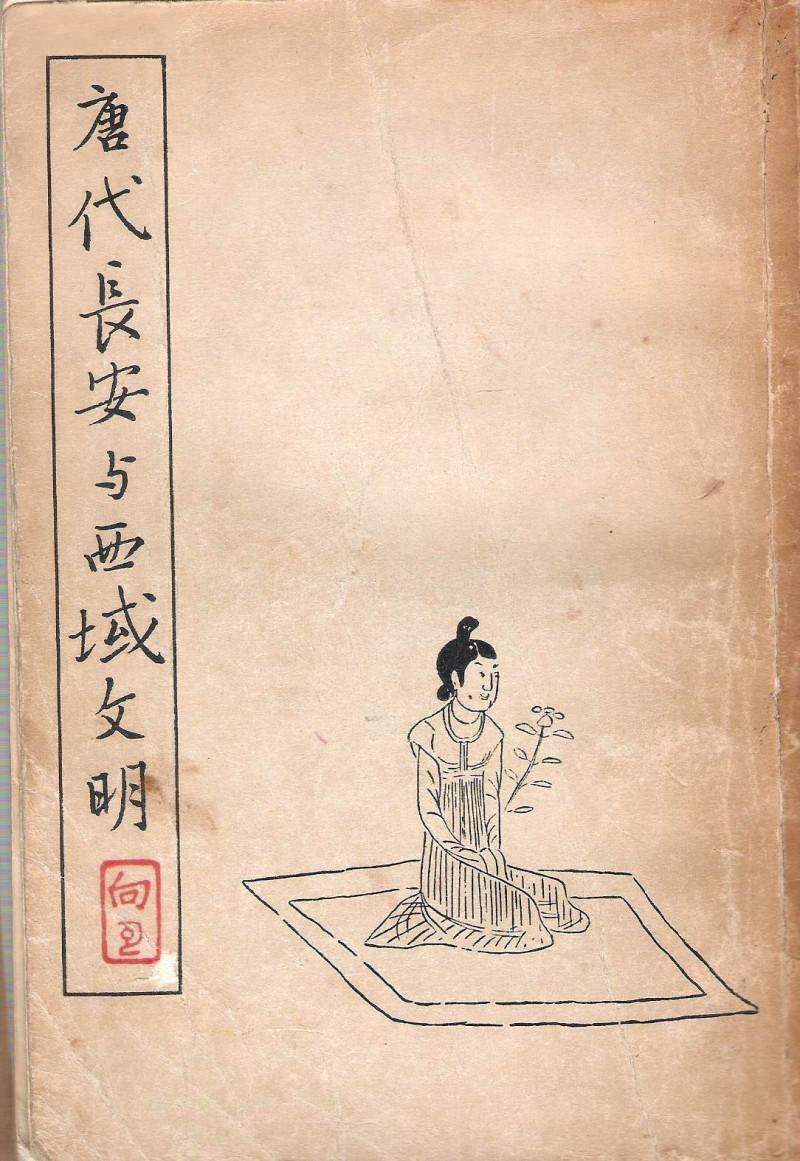 唐代長安与西域文明
向